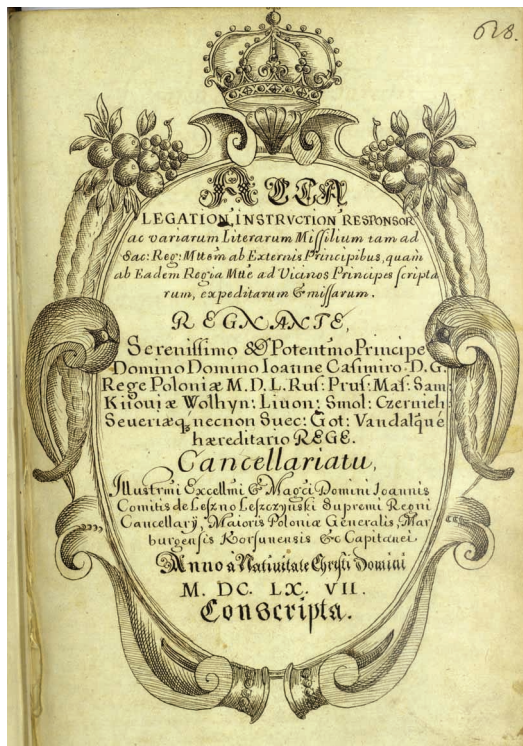 628.
ACTA
LEGATION, INSTRVCTION RESPONSOR
ac variarum Literarum Missilium tam ad
Sac: Reg: Mttem ab Externis Principibus, quam
ab Eadem Regia Mtte ad Vicinos Principes scripta
rum, expeditarum & missarum.
REGNANTE,
Serenissimo & Potentmo Principe
Domino Domino Ioanne Casimiro D. G.
Rege Poloniæ M. D. L. Rus: Prus: Mas: Sam:
Kijouiæ Wolhyn: Liuon: Smol: Czernich:
Seueriæq; necnon Suec: Got: Vandalqué
hæreditario REGE.
Cancellariatu,
Illustrmi Excellmi & Magci Domini Ioannis
Comitis de Leszno Leszczynski Supremi Regni
Cancellarij, Maioris Poloniæ Generalis, Mar
burgensis Korsunensis &c Capitanei.
Anno à Natiuitate Christi Domini
M. DC. LX. VII.
Conscripta.